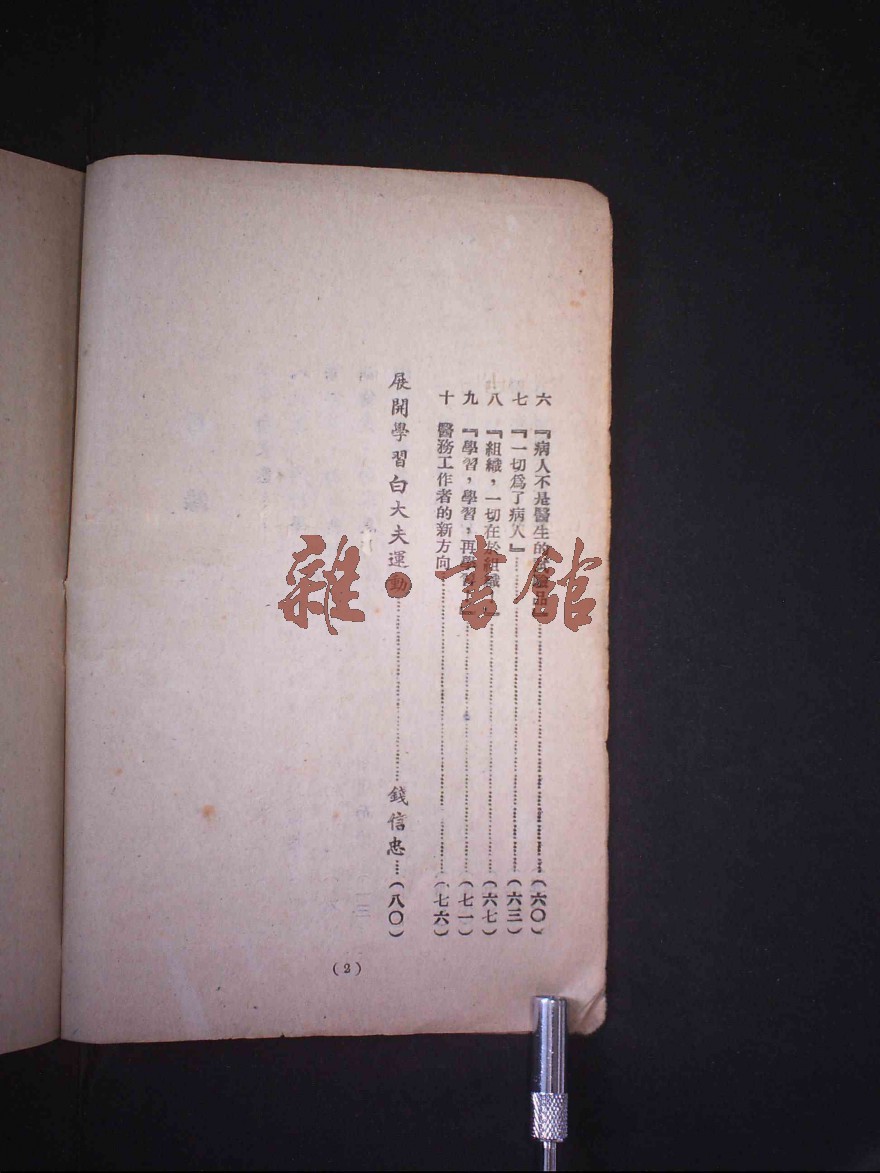 六　『病人不是醫生的試驗品』……（六〇）
七　『一切爲了病人』……（六三）
八　『組織，一切在於組織』……（六七）
九　『學習，學習，再學習』……（七一）
十　醫務工作者的新方向……（七六）
展開學習白大夫運動……錢信忠…（八〇）
（2）
雜·書館